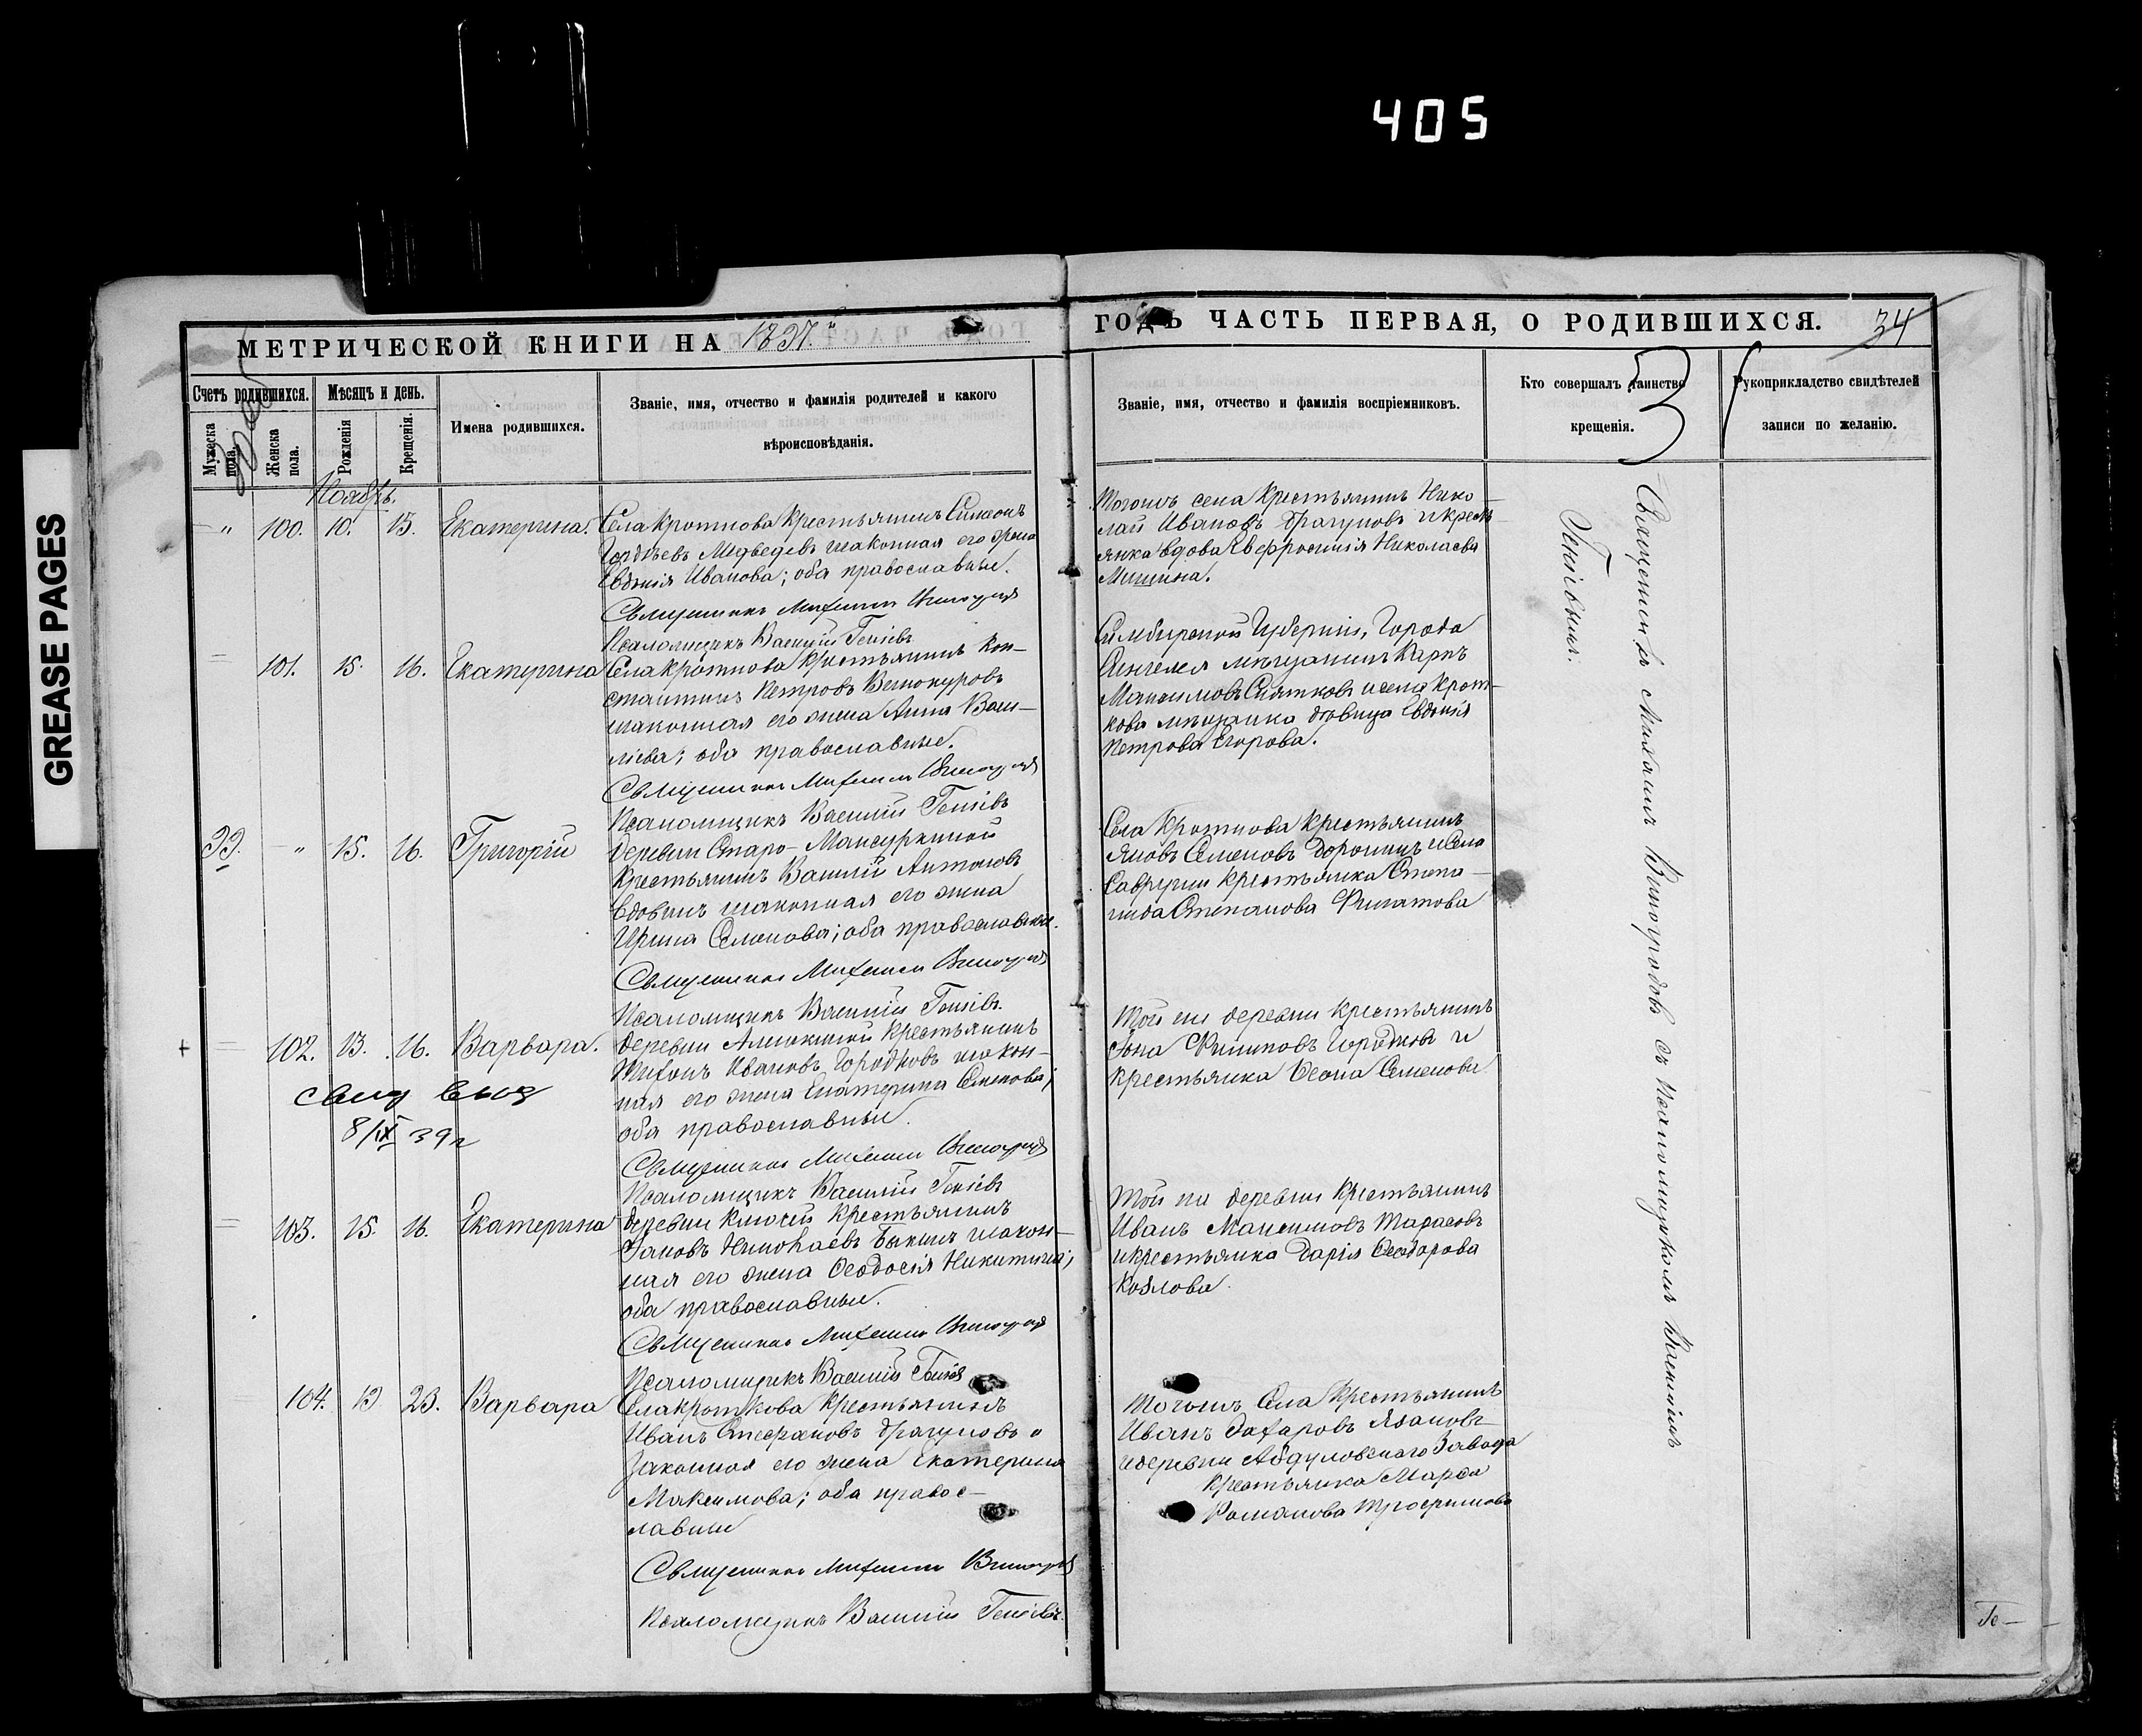 405
GREASE PAGES
МЕТРИЧЕСКОЙ КНИГИ НА 1897
ГОДЪ ЧАСТЬ ПЕРВАЯ, О РОДИВШИХСЯ.
34
Счетъ родившихся.
Мужеска пола.
Женска пола.
Мѣсяцъ и день.
Рожденія
Крещенія.
Имена родившихся.
Званіе, имя, отчество и фамилія родителей и какого
вѣроисповѣданія.
Званіе, имя, отчество и фамилія воспріемниковъ.
Кто совершалъ таинство
крещенія.
Рукоприкладство свидѣтелей
записи по желанію.
Ноябрь.
100. 10. 15. Екатерина.
Села Кроткова крестьянинъ Симеонъ
Гордѣевъ Медведевъ и законная его жена
Евдокія Иванова; оба православные.
Священникъ Михаилъ Виноградовъ
Псаломщикъ Василий Гениевъ
Тогожъ села крестьянинъ Нико-
лай Ивановъ Драгуновъ и кресть
янка вдова Евфросинія Николаева
Мишина.
101. 15. 16. Екатерина
Села Кроткова крестьянинъ Кон-
стантинъ Петровъ Винокуровъ
и законная его жена Анна Васи-
лиева; оба православные.
Священникъ Михаилъ Виноградовъ
Псаломщикъ Василий Гениевъ
Симбирской Губерніи, Города
Сенгилея мѣщанинъ Карпъ
Максимовъ и села Крот-
кова мѣщанка девица Евдокія
Петрова Егорова.
99. 15. 16. Григорій
Деревни Старо-Мансуркиной
Крестьянинъ Василій Антоновъ
Вдовинъ и законная его жена
Ирина Семенова; оба православные.
Священникъ Михаилъ Виноградовъ
Псаломщикъ Василий Гениевъ.
Села Кроткова крестьянинъ
Яковъ Семеновъ Доронинъ и села
Саврухи крестьянка Степа-
нида Степанова Филатова
102. 13. 16. Варвара.
Деревни Алешкиной крестьянинъ
Тихонъ Ивановъ Городновъ и закон-
ная его жена Екатерина Семенова;
оба православные.
Священникъ Михаилъ Виноградовъ
Псаломщикъ Василий Гениевъ
8/IX 39 г
Той же деревни крестьянинъ
Филиповъ и
крестьянка Семенова
103. 15. 16. Екатерина
Деревни Ключей крестьянинъ
Яковъ Николаевъ Быкинъ и закон-
ная его жена Ѳеодосія Никитина;
оба православные.
Священникъ Михаилъ Виноградовъ
Псаломщикъ Василий Гениевъ
Той же деревни крестьянинъ
Иванъ Максимовъ Тарасовъ
и крестьянка Дарія Ѳеодорова
Козлова.
104. 23. Варвара
Села Кроткова крестьянинъ
Иванъ Стефановъ Драгуновъ и
законная его жена Екатерина
Максимова; оба правос-
лавные
Священникъ Михаилъ Виноградовъ
Псаломщикъ Василий Гениевъ.
Тогожъ села крестьянинъ
Иванъ Захаровъ Язановъ
и деревни Абдуловскаго Завода
крестьянка Марфа
Романова Трофимова
Священникъ Михаилъ Виноградовъ съ псаломщикомъ Василіемъ
Геніевымъ.